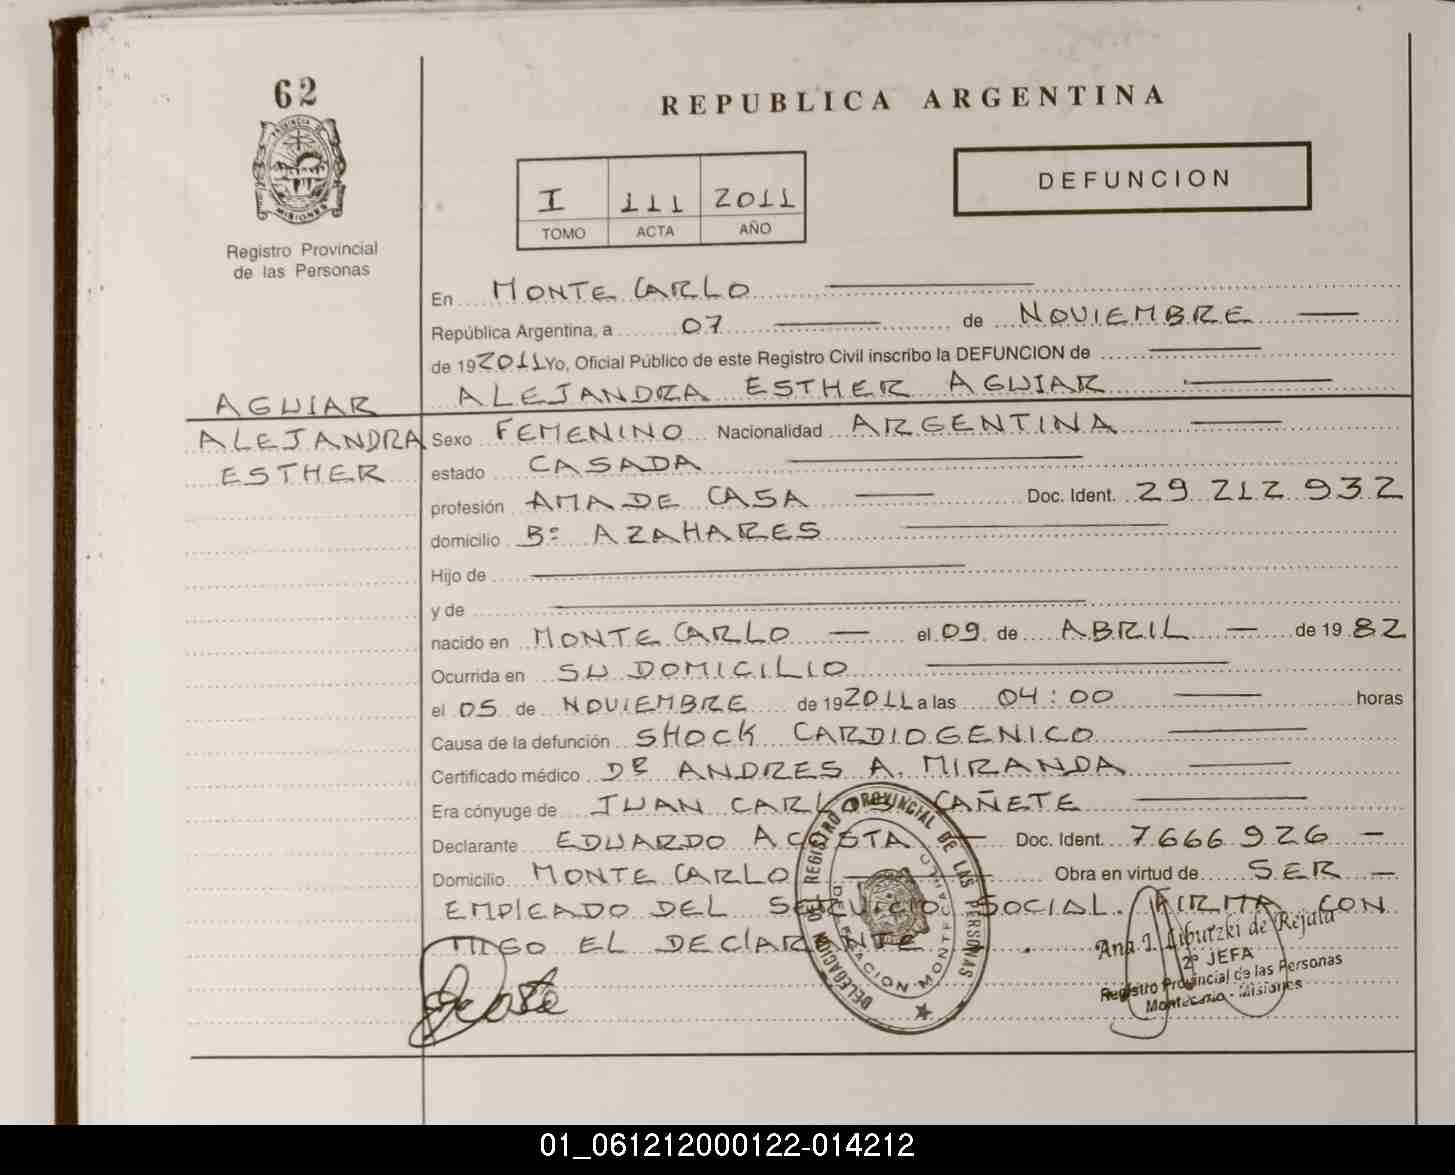 62
PROVINCIA DE
MISIONES
Registro Provincial
de las Personas
AGUIAR
ALEJANDRA
ESTHER
REPUBLICA ARGENTINA
I 111 2011
TOMO ACTA AÑO
DEFUNCION
En MONTE CARLO
República Argentina, a 07 de NOVIEMBRE
de 19 2011 Yo, Oficial Público de este Registro Civil inscribo la DEFUNCION de
ALEJANDRA ESTHER AGUIAR
Sexo FEMENINO Nacionalidad ARGENTINA
estado CASADA
profesión AMA DE CASA Doc. Ident. 29 212 932
domicilio Bº AZAHARES
Hijo de
y de
nacido en MONTE CARLO el 09 de ABRIL de 19 82
Ocurrida en SU DOMICILIO
el 05 de NOVIEMBRE de 19 2011 a las 04:00 horas
Causa de la defunción SHOCK CARDIOGENICO
Certificado médico DR ANDRES A. MIRANDA
Era cónyuge de JUAN CARLOS CAÑETE
Declarante EDUARDO ACOSTA Doc. Ident. 7666926
Domicilio MONTE CARLO Obra en virtud de SER
EMPLEADO DEL SERVICIO SOCIAL. FIRMA CON
MIGO EL DECLARANTE
DELEGACION DEL REGISTRO PROVINCIAL DE LAS PERSONAS
DELEGACION MONTECARLO
Ana I. Libutzki de Rejala
2º JEFA
Registro Provincial de las Personas
Montecarlo - Misiones
01_061212000122-014212